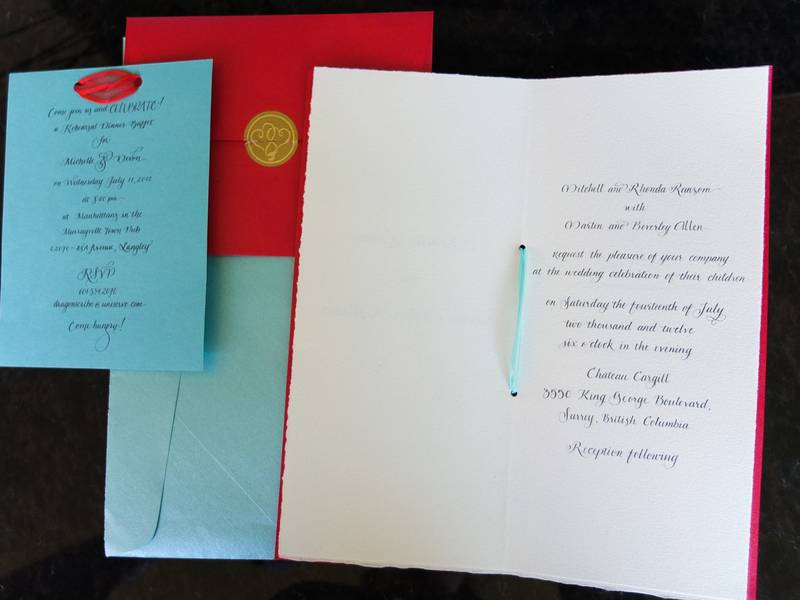 Come join us and CELEBRATE!
a Rehearsal Dinner Buffet
for
Michelle & Devon
on Wednesday July 11, 2012
at 5:00 pm
at Manhattans in the
Murrayville Town Pub
48A Avenue, Langley
RSVP
604.534.2070
dragonscribe@uniserve.com
Come hungry!
Mitchell and Rhonda Ransom
with
Martin and Beverley Allen
request the pleasure of your company
at the wedding celebration of their children
on Saturday the fourteenth of July
two thousand and twelve
six o'clock in the evening
Château Cargill
3550 King George Boulevard,
Surrey, British Columbia
Reception following